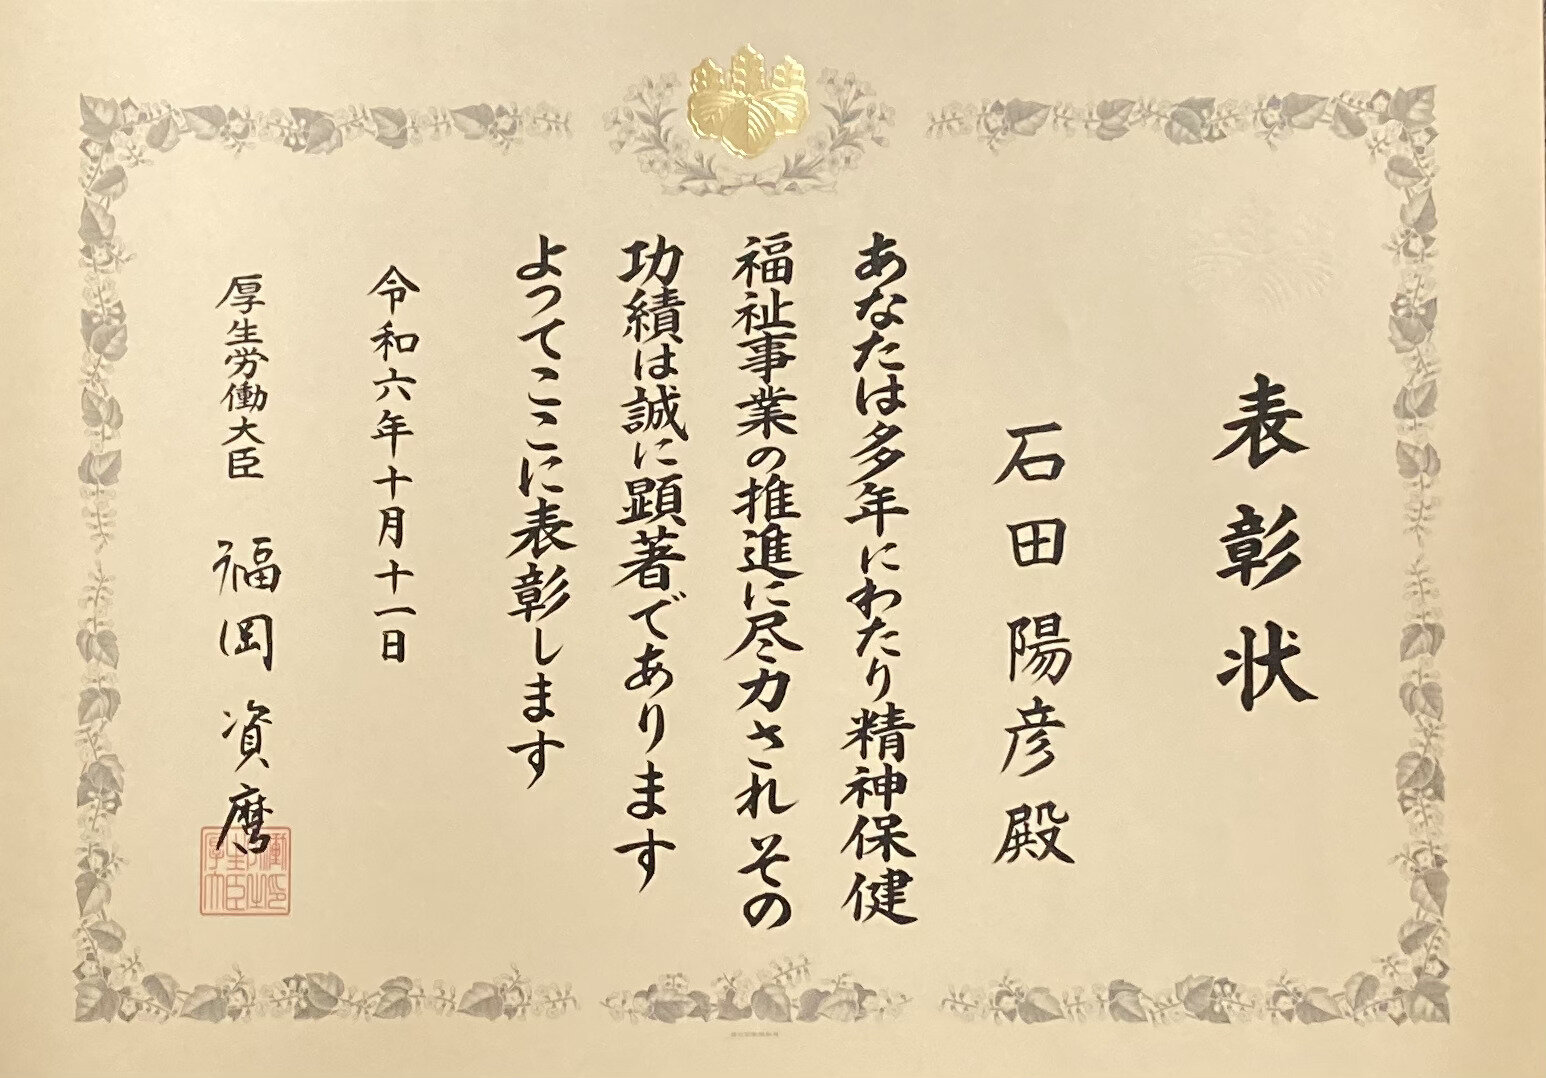 表彰状
石田陽彦殿
あなたは多年にわたり精神保健
福祉事業の推進に尽力されその
功績は誠に顕著であります
よってここに表彰します
令和六年十月十一日
厚生労働大臣 福岡資麿